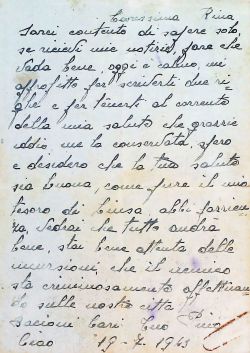 Carissima Pina
Sarei contento di sapere solo,
se ricevi mie notizie, spero che
vada bene, oggi è calmo, mi
approfitto per scriverti due ri-
ghe e per tenerti al corrente
della mia salute che grazie
iddio, me la conservata, spero
e desidero che la tua salute
sia buona, come pure il mio
tesoro di abbi pazien
za, vedrai che tutto andrà
bene, stai bene attenta delle
incursioni, che il nemico
sta criminosamente effettuan
do sulle nostre città
Bacioni Cari Tuo
Ciao 19-7 1943